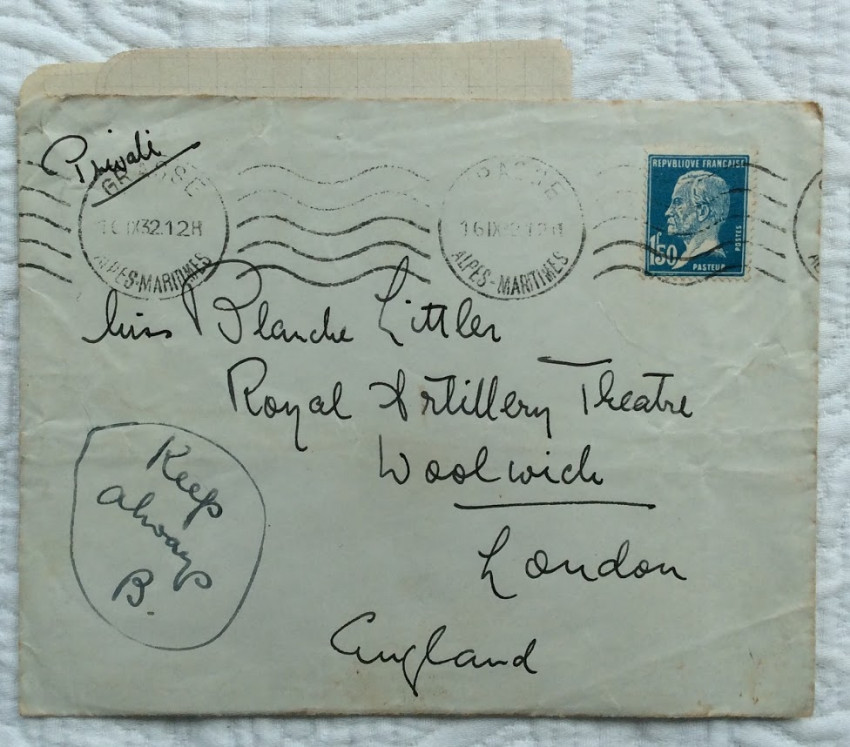 Private
GRASSE
16 IX 32.12H
ALPES-MARITIMES
GRASSE
16 IX 32.12H
ALPES-MARITIMES
REPVBLIQVE FRANÇAISE
1F50
POSTES
PASTEUR
Miss Blanche Littler
Royal Artillery Theatre
Woolwich
London
England
Keep
always
B.